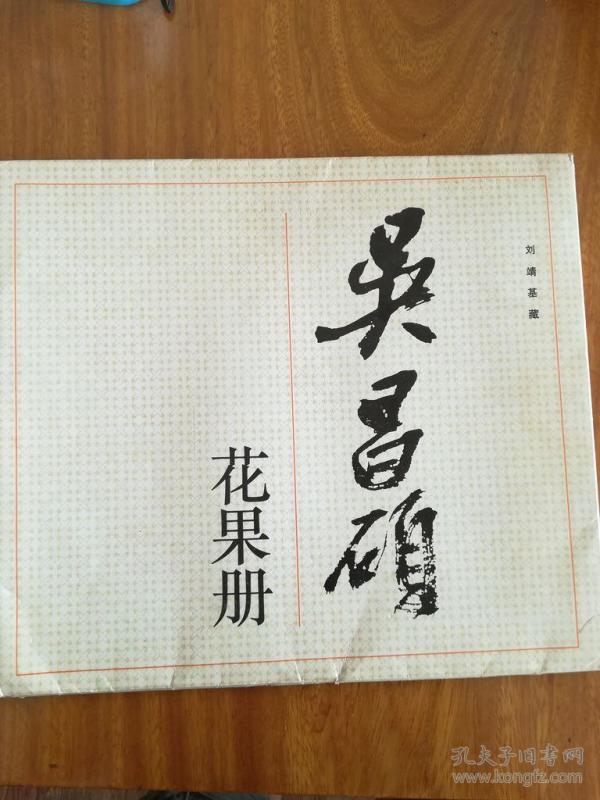 刘靖基藏
吳昌碩
花果册
孔夫子旧书网
www.kongfz.com